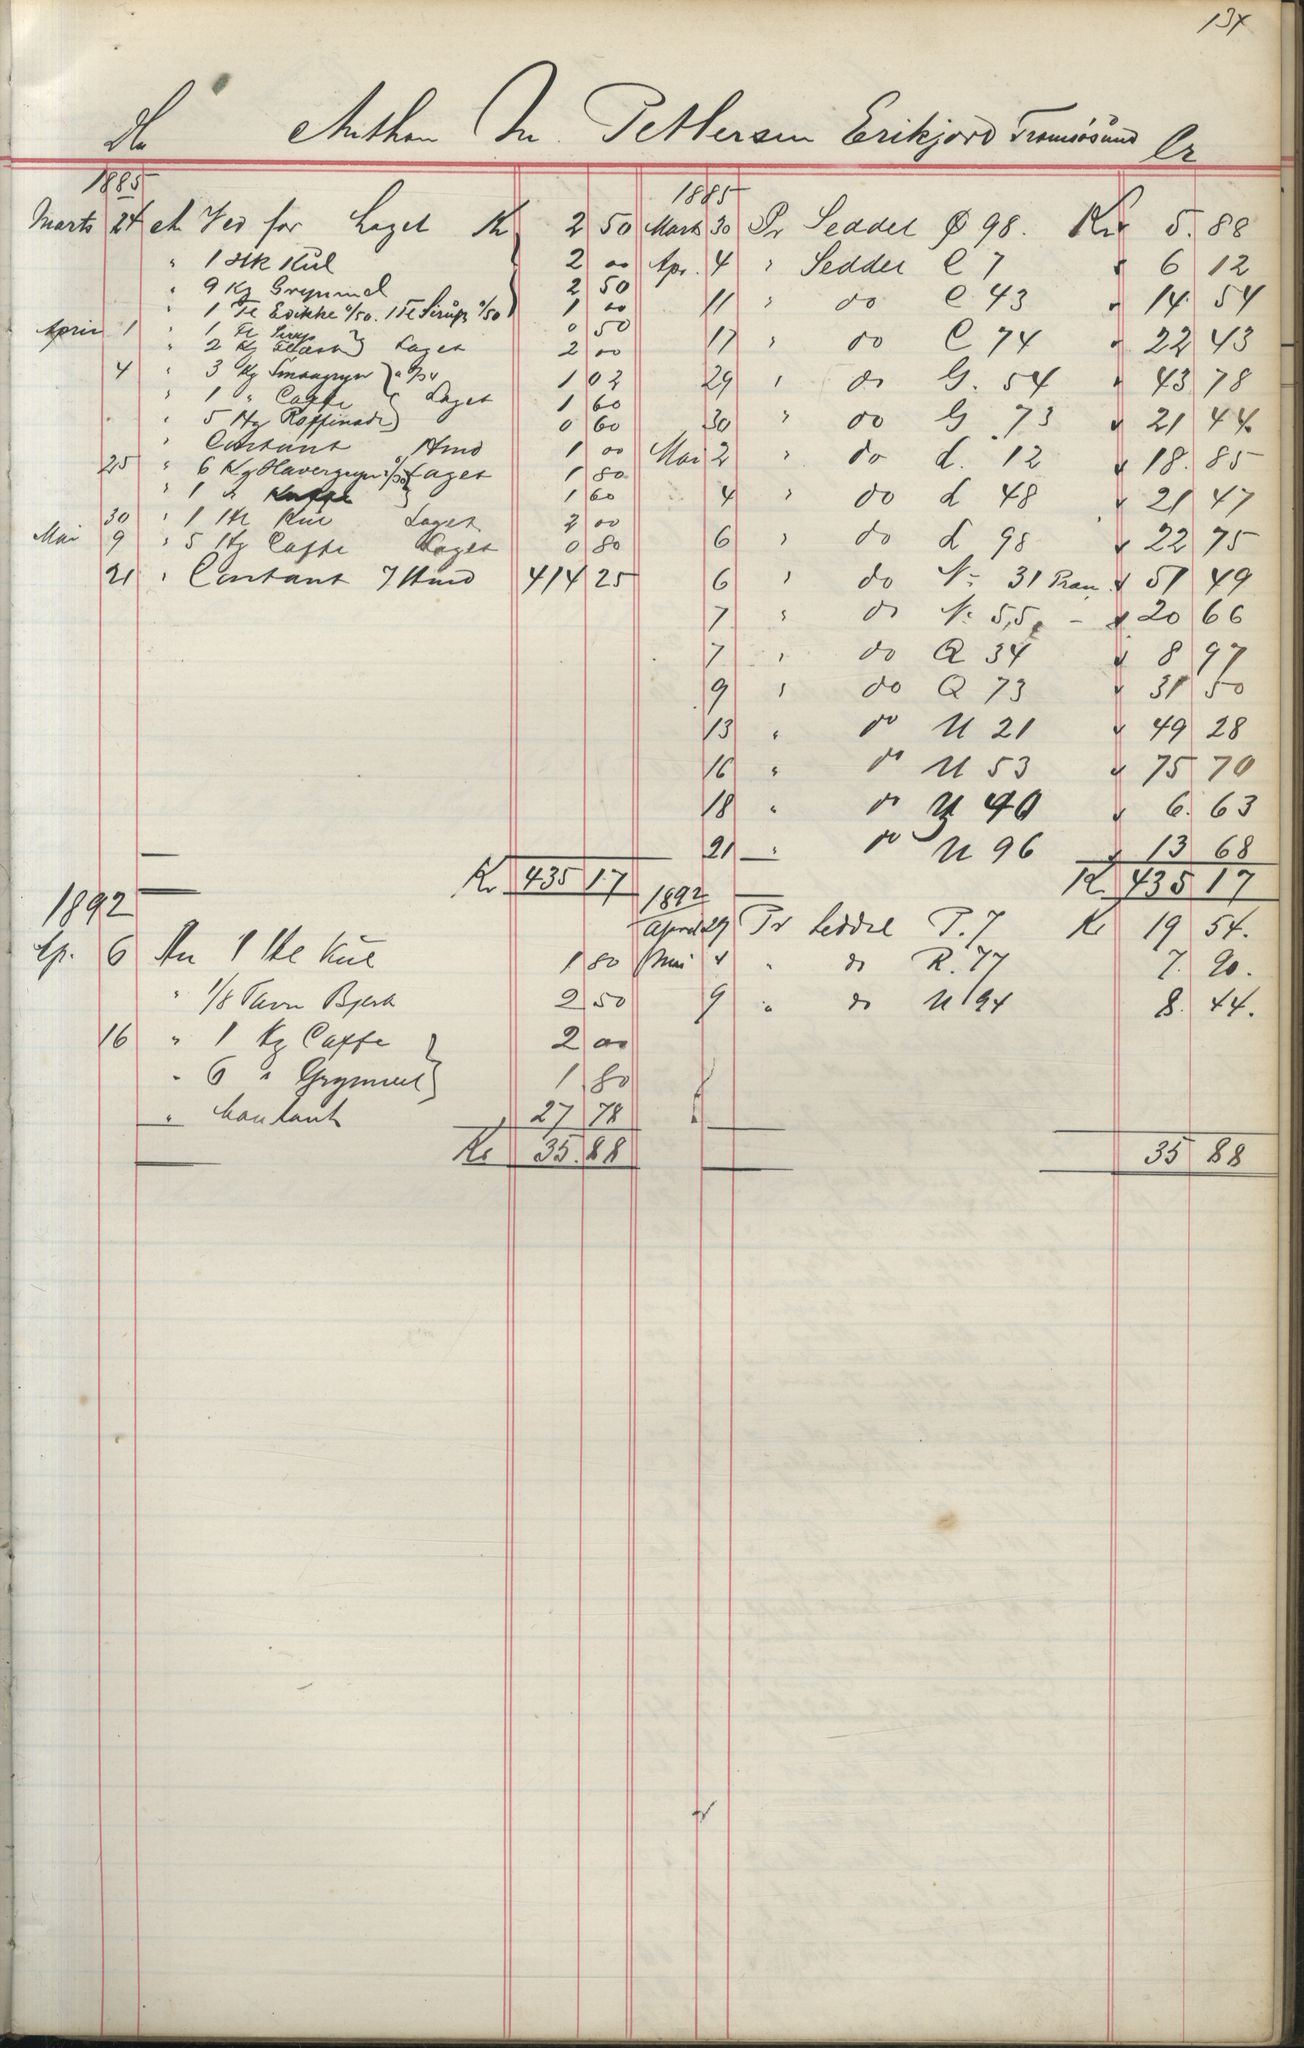 134
Anthon M. Pettersen Erikjord Tromsøsund Cr
1885
Marts 24 Ved for Laget Kr 2 50
" 1 Hk Kul 2 00
" 9 Kg Grynmel 2 50
" 1 Fl Edikke 0/50. 1 Fl Sirup 0/50 1 00
April 1 " 1 Fl Sirup 0 50
" 2 Kg Flæsk Laget 2 00
4 " 3 Kg Smaagryn a 0/34 1 02
" 1 " Caffe Laget 1 60
" 5 Hg Raffinade 0 60
" Contant Hmd 1 00
25 " 6 Kg Havergryn 0/30 Laget 1 80
" 1 " 1 60
30 " 1 Hl Kul Laget 2 00
Mai 9 " 5 Hg Caffe Laget 0 80
21 " Contant Hmd 414 25
Kr 435 17
1885
Marts 30 Pr Seddel Ø 98. Kr 5.88
Apr. 4 " Seddel C 7 6 12
11 " do C 43 14 54
17 " do C 74 22 43
29 " do G. 54 43 78
30 " do G 73 21 44
Mai 2 " do d. 12 18.85
4 " do d 48 21 47
6 " do d 98 22 75
6 " do N: 31 51 49
7 " do N: 55 - 20 66
7 " do Q 34 8 97
9 " do Q 73 31 50
13 " do U 21 49 28
16 " do U 53 75 70
18 " do U 90 6.63
21 " do U 96 13 68
Kr 435 17
1892
Ap. 6 An 1 Hl Kul 1 80
" 1/8 Favn Bjerk 2 50
16 " 1 Kg Caffe 2 00
" 6 " Grynmel 1.80
" Contant 27 78
Kr 35.88
1892
April 29 Pr Seddel P. 7 Kr 19 54.
Mai 4 " do R. 77 7.90.
9 " do U 94 8.44.
35 88